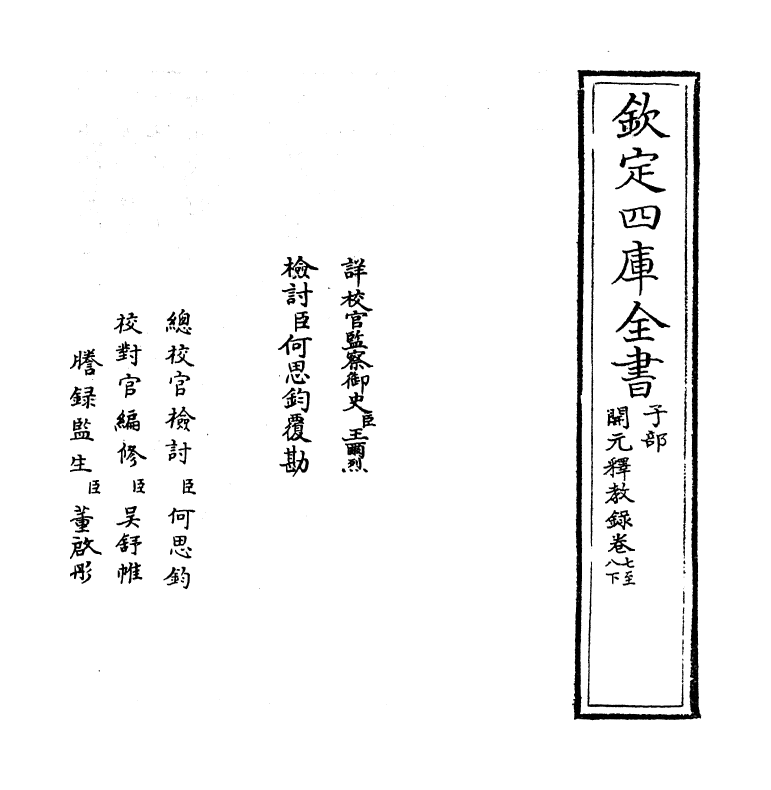 欽定四庫全書
子部
開元釋教錄卷七至八下
詳校官監察御史臣王爾烈
檢討臣何思鈞覆勘
總校官檢討臣何思鈞
校對官編修臣吳舒帷
謄録監生臣董啟彤